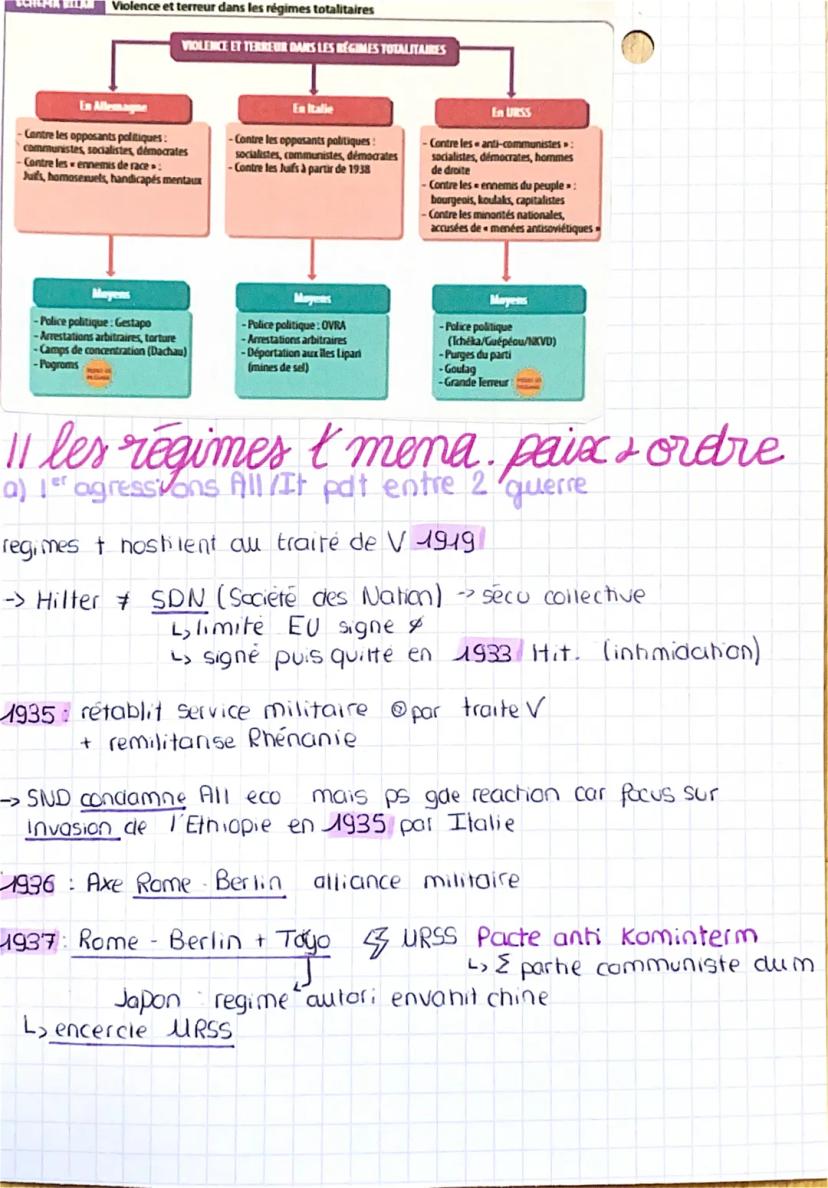 SCHÉMA BILAN Violence et terreur dans les régimes totalitaires
VIOLENCE ET TERREUR DANS LES RÉGIMES TOTALITAIRES
En Allemagne
- Contre les opposants politiques :
communistes, socialistes, démocrates
- Contre les « ennemis de race » :
Juifs, homosexuels, handicapés mentaux
En Italie
- Contre les opposants politiques :
socialistes, communistes, démocrates
- Contre les Juifs à partir de 1938
En URSS
- Contre les « anti-communistes » :
socialistes, démocrates, hommes
de droite
- Contre les « ennemis du peuple » :
bourgeois, koulaks, capitalistes
- Contre les minorités nationales,
accusées de « menées antisoviétiques »
Moyens
- Police politique : Gestapo
- Arrestations arbitraires, torture
- Camps de concentration (Dachau)
- Pogroms
Moyens
- Police politique : OVRA
- Arrestations arbitraires
- Déportation aux îles Lipari
(mines de sel)
Moyens
- Police politique
(Tchéka/Guépéou/NKVD)
- Purges du parti
- Goulag
- Grande Terreur
II les régimes t mena. paix & ordre
a) 1er agressions All/It pdt entre 2 guerre
regimes t hostilent au traité de V 1919
-> Hilter ≠ SDN (Société des Nation) -> sécu collective
↳ limité EU signe ∅
↳ signé puis quitté en 1933 Hit. (intimidation)
1935 : rétablit service militaire par traite V
+ remilitarise Rhénanie
-> SND condamne All eco mais ps gde reaction car focus sur
invasion de l'Ethiopie en 1935 par Italie
1936 : Axe Rome - Berlin alliance militaire
1937 : Rome - Berlin + Toyo URSS Pacte anti Kominterm
↳ Σ partie communiste du m
Japon : regime autori envahit chine
↳ encercle URSS